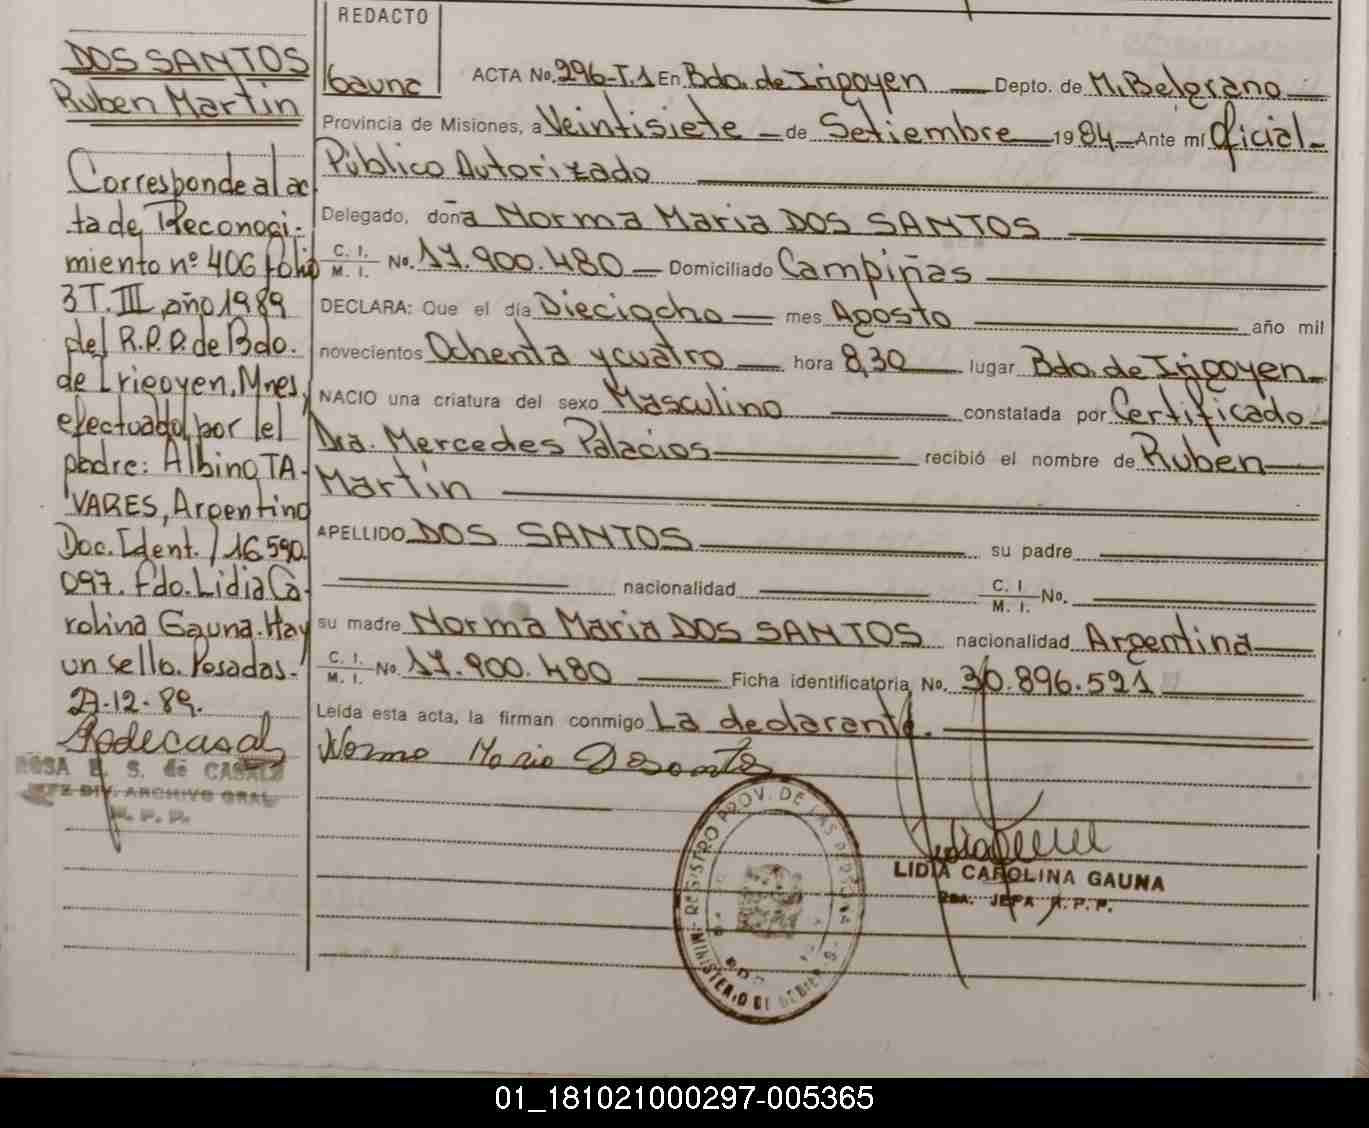 DOS SANTOS
Ruben Martin
Corresponde al ac
ta de Reconoci-
miento nº 406 folio
3 T. III, año 1989
del R.P.P. de Bdo.
de Irigoyen, Mnes,
efectuado por el
padre: Albino TA-
VARES, Argentino
Doc. Ident. 16590.
097. Fdo. Lidia Ca-
rolina Gauna. Hay
un sello. Posadas.
27-12-89.
ROSA E. S. de CASALS
JEFE DIV. ARCHIVO GRAL
R. P. P.
REDACTO
Gauna
ACTA No. 296-T.1 En Bdo. de Irigoyen Depto. de M. Belgrano
Provincia de Misiones, a Veintisiete de Setiembre 1984 Ante mí Oficial
Público Autorizado
Delegado, doña Norma Maria DOS SANTOS
C. I.
M. I. No. 17.900.480 Domiciliado Campiñas
DECLARA: Que el día Dieciocho mes Agosto año mil
novecientos Ochenta y cuatro hora 8,30 lugar Bdo. de Irigoyen
NACIO una criatura del sexo Masculino constatada por Certificado
Dra. Mercedes Palacios recibió el nombre de Ruben
Martín
APELLIDO DOS SANTOS su padre
nacionalidad C. I.
M. I. No.
su madre Norma Maria DOS SANTOS nacionalidad Argentina
C. I.
M. I. No. 17.900.480 Ficha identificatoria No. 30.896.521
Leída esta acta, la firman conmigo La declarante.
Norma Maria Dosantos
REGISTRO PROV. DE LAS PERSONAS
MINISTERIO DE GOBIER
LIDIA CAROLINA GAUNA
2DA. JEFA R.P.P.
01_181021000297-005365